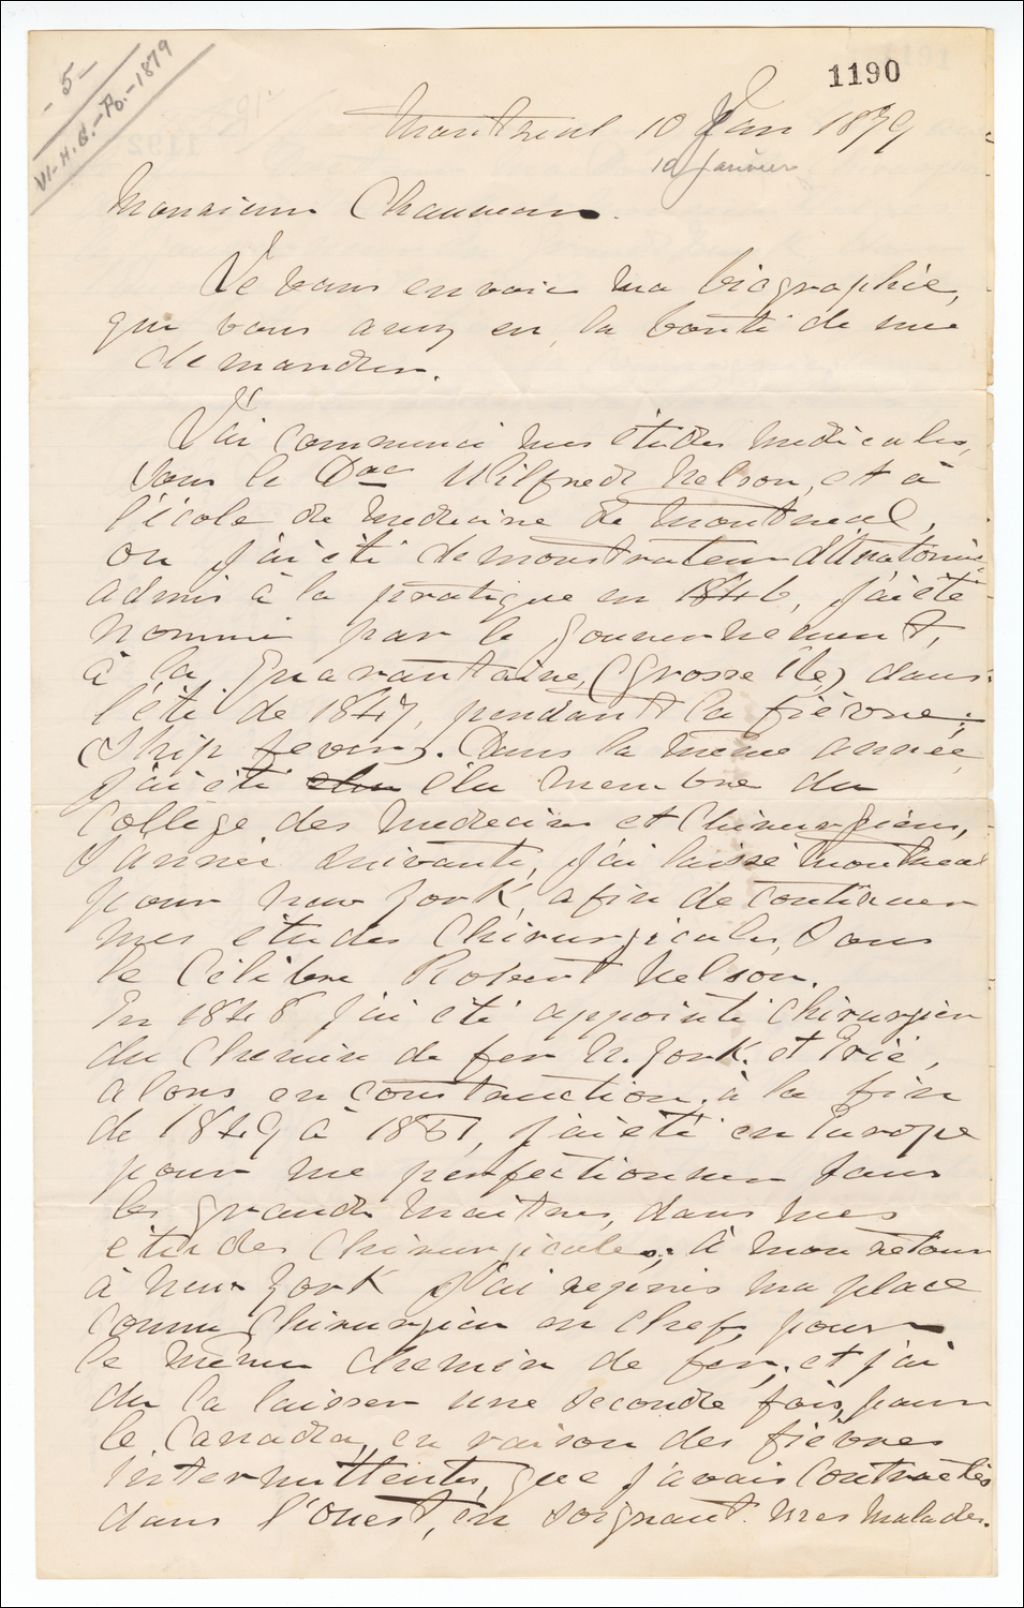 1190
- 5 -
VI-H.B.-Po.-1879
Montreal 10 Jan 1879
10 Janvier
Monsieur Chauveau.
Je vous envoie ma biographie,
que vous avez eu la bonté de me
demander.
J'ai commencé mes études medicales,
sous le Doc Wilfred Nelson, et à
l'école de medecine de Montreal,
ou j'ai été demonstrateur d'Anatomie
admis à la pratique en 1846, j'ai été
nommé par le Gouvernement,
à la Quarantaine, (Grosse Ile) dans
l'été de 1847, pendant la fièvre;
(Ship fever). Dans la même année
j'ai été elu élu membre du
Collège des Medecins et Chirurgiens,
l'année suivante, j'ai laissé Montreal
pour New York, afin de continuer
mes études Chirurgicales, sous
le Célèbre Robert Nelson.
En 1848 j'ai été appointé Chirurgien
du Chemin de fer N. York. et Erié,
alors en construction, à la fin
de 1849 à 1851, j'ai été en Europe
pour me perfectionner sous
les grands maitres, dans mes
études Chirurgicales; à mon retour
à New York j'ai repris ma place
comme Chirurgien en Chef, pour
le même chemin de fer; et j'ai
du la laisser une seconde fois, pour
le Canada, en raison des fièvres
intermittentes, que j'avais contractées
dans l'ouest, en soignant mes malades.